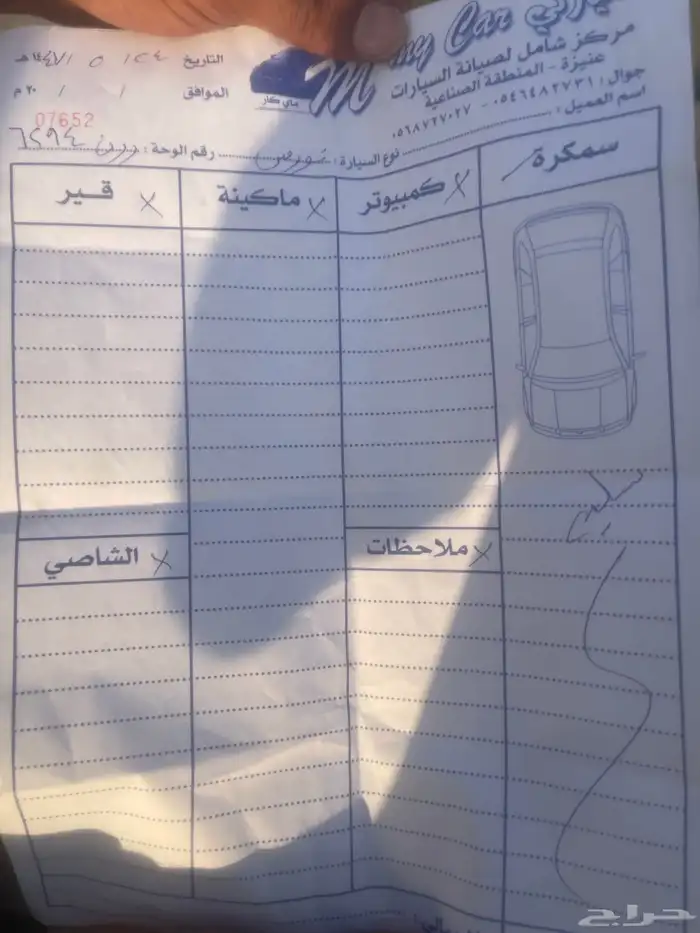 my Car
مركز شامل لصيانة السيارات
عنيزة - المنطقة الصناعية
جوال : ٠٥٤٦٤٨٢٧٣١ - ٠٥٦٨٧٢٧٠٢٧
اسم العميل :
التاريخ / ٥ / ١٤٤ هـ
الموافق / / ٢٠ م
ماي كار
07652
نوع السيارة : رقم الوحة :
سمكرة
كمبيوتر
ماكينة
قير
سليم
ملاحظات
الشاصي
حراج